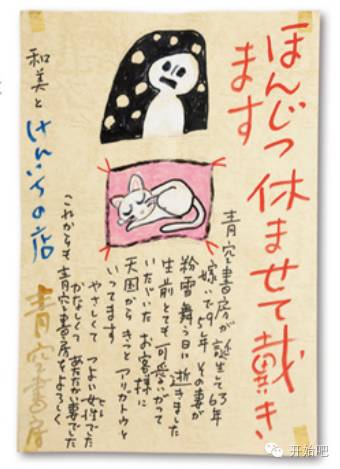 ほんじつ休ませて戴き
ます
青空書房が誕生して63年
嫁いで59年 その妻が
粉雪舞う日に逝きました
生前とても可愛いがって
いただいた お客様に
天国から きっと アリガトウと
いってます
やさしくて つよい女性でした
かなしくて あたたかい妻でした
これからも 青空書房をよろしく
和美と けんいちの店
青空書房
开始吧